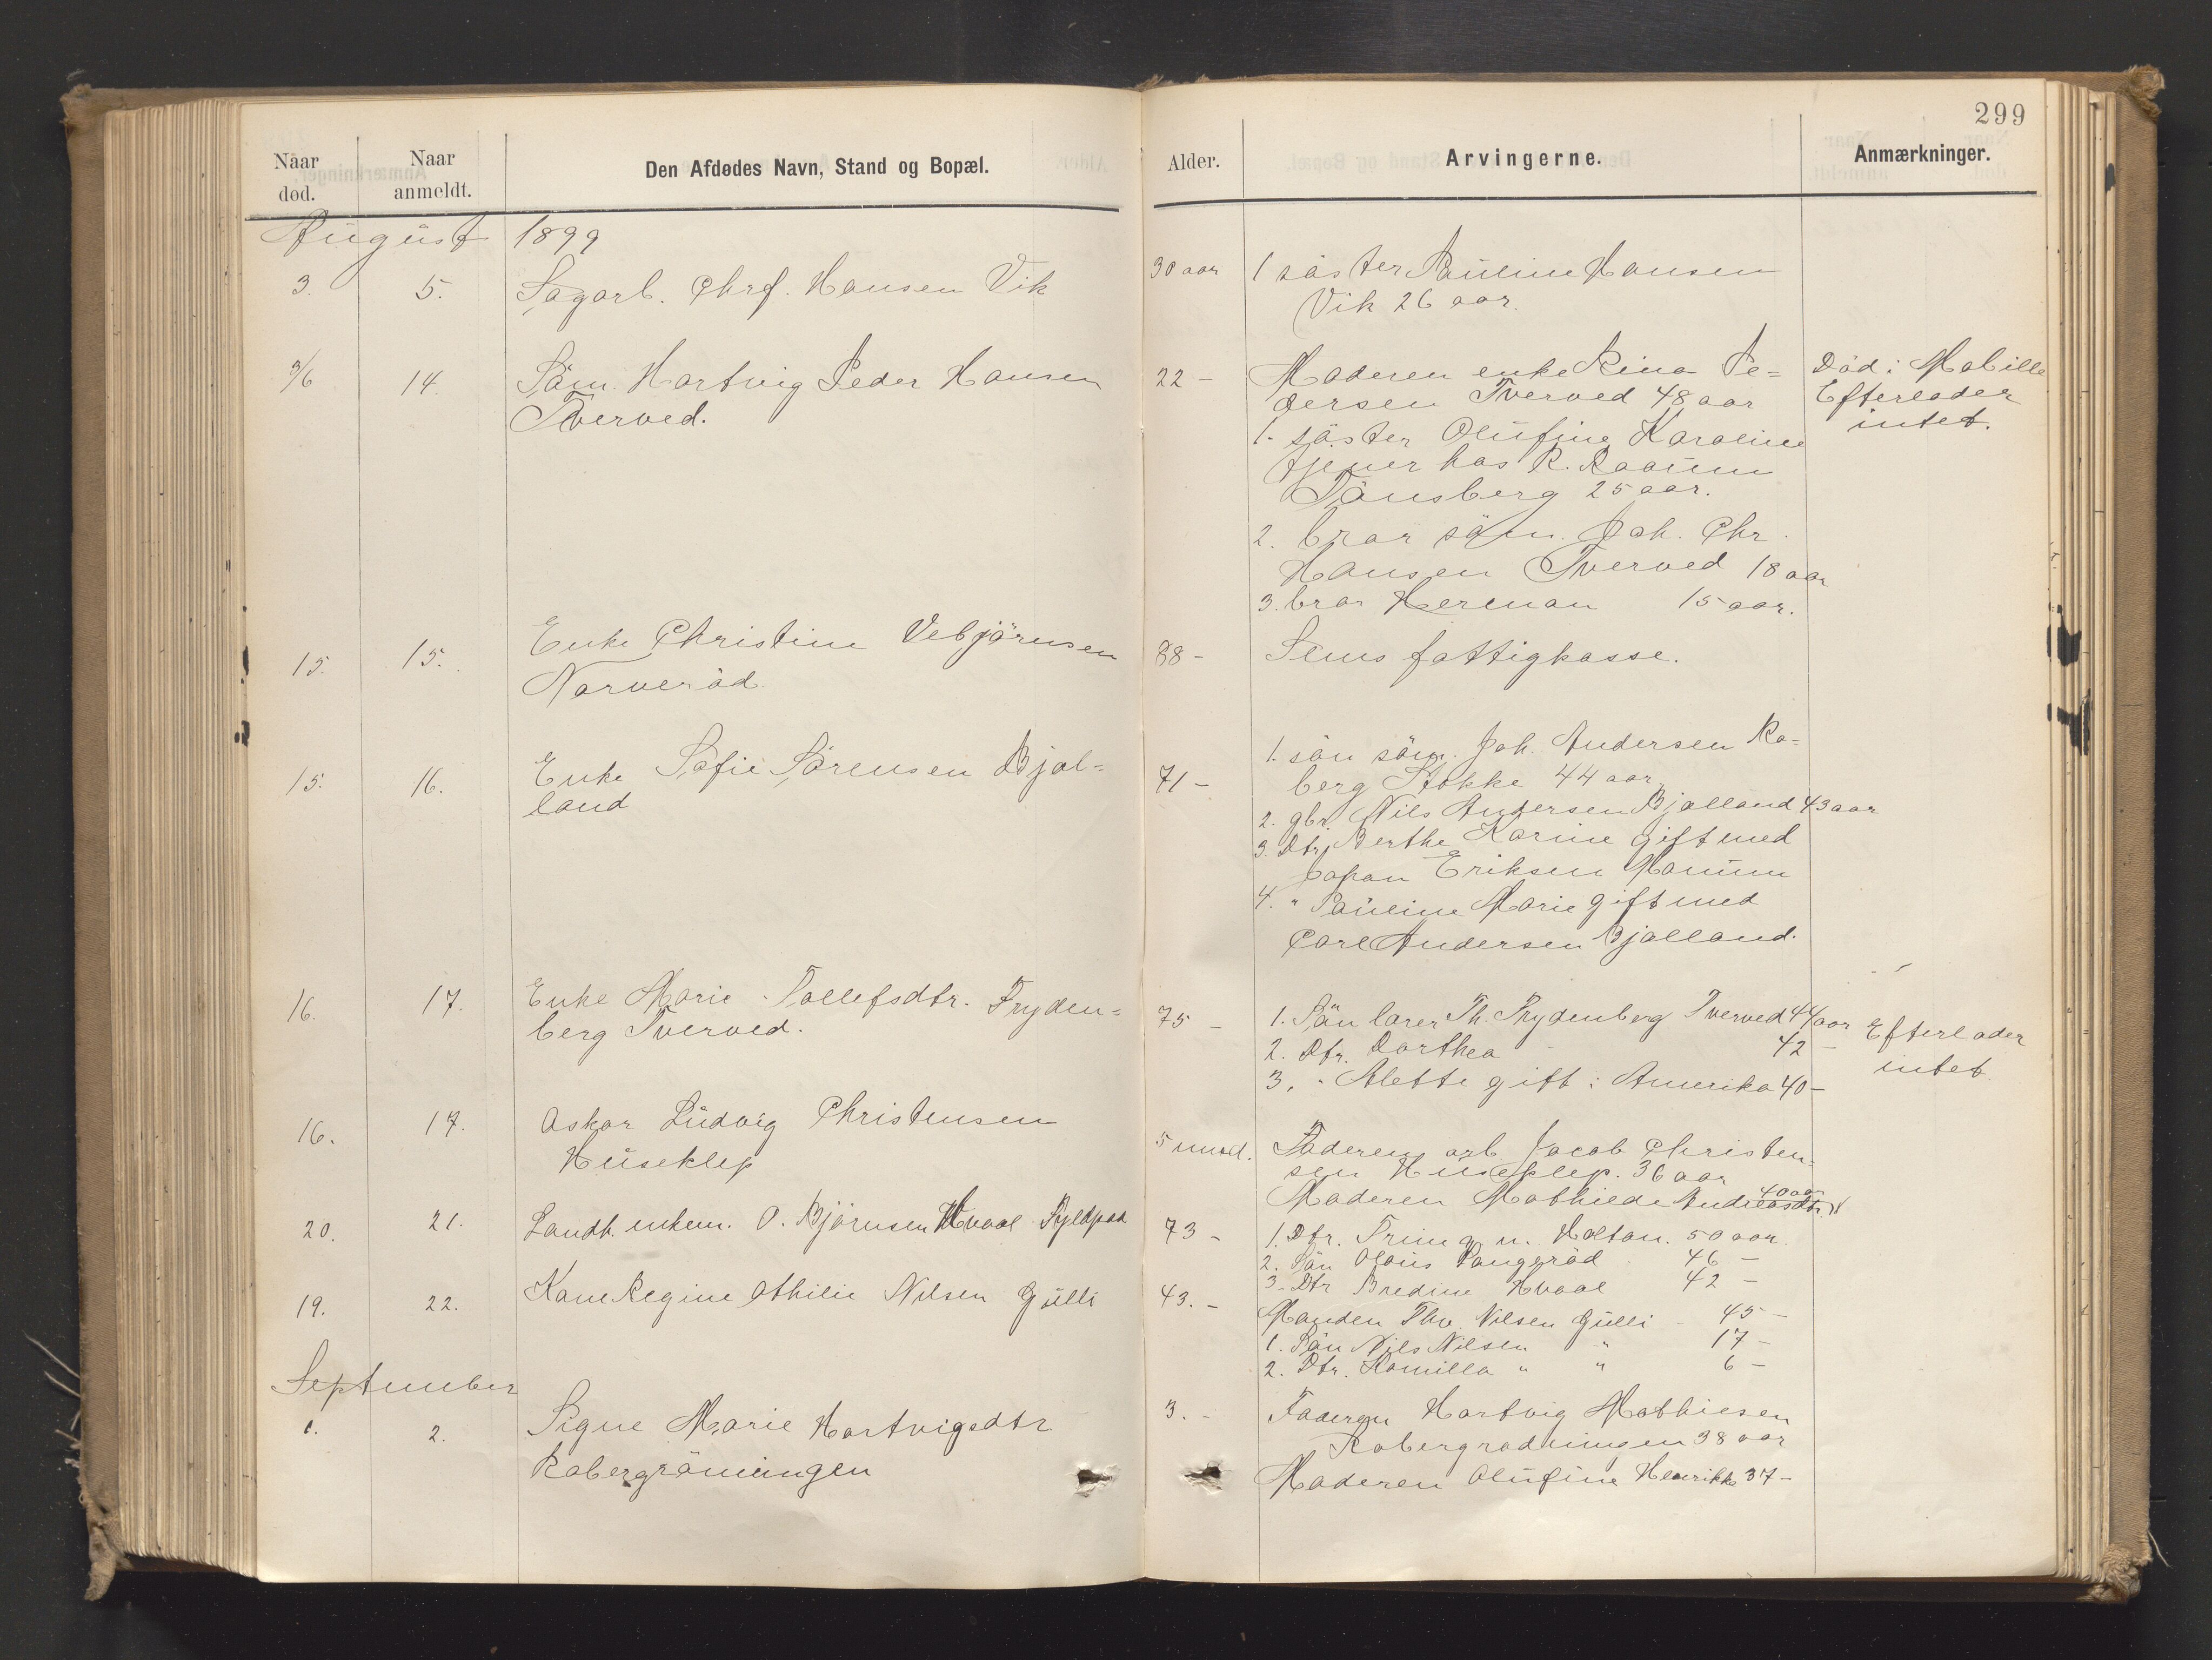 299
Naar død.
Naar anmeldt.
Den Afdødes Navn, Stand og Bopæl.
Alder.
Arvingerne.
Anmærkninger.
August 1899
3. 5. Sagarb. Chrf. Hansen Vik
30 aar
1 søster Pauline Hansen
Vik 26 aar.
3/6 14. Söm. Hartvig Peder Hansen
Tverved.
22 -
Moderen enke Rina Pe=
dersen Tverved 48 aar
1. søster Olufine Karoline
tjener hos R. Raaum
Tönsberg 25 aar.
2. bror söm. Joh. Chr.
Hansen Tverved 18 aar
3. bror Herman 15 aar.
Död i Mobille
Efterlader
intet.
15. 15. Enke Christine Vebjörnsen
Narveröd
88 -
Sems fattigkasse.
15. 16. Enke Sofie Sörensen Bjol=
land
71 -
1. sön söm. Joh. Andersen Ra=
berg Stokke 44 aar
2. gbr. Nils Andersen Bjolland 43 aar
3. Dtr. Berthe Karine gift med
Johan Eriksen
4. " Pauline Marie gift med
Carl Andersen Bjolland.
16. 17. Enke Marie Tollefsdtr. Fryden=
berg Tverved.
75 -
1. Sön lærer Th. Frydenberg Tverved 44 aar
2. Dtr. Dorthea 42 -
3. " Alette gift i Amerika 40 -
Efterlader
intet
16. 17. Oskar Ludvig Christensen
Huseklep
5 mnd.
Faderen arb. Jacob Christen=
sen Huseklep. 36 aar
Moderen Mathilde Andreasdtr. 40 aar
20. 21. Landh. enkem. O. Björnsen Hvaal
73 -
1. Dtr. Trine g. m. Holtan. 50 aar.
2. Sön Olaus Vangeröd 46 -
3. Dtr Bredine Hvaal 42 -
19. 22. Kone Regine Othilie Nilsen Gulli
43. -
Manden Thv. Nilsen Gulli - 45 -
1. Sön Nils Nilsen " 17 -
2. Dtr. Kamilla " " 6 -
September
1. 2. Signe Marie Hartvigsdtr
Rabergröningen
3. -
Faderen Hartvig Mathiesen
Rabergrodningen 38 aar
Moderen Olufine Henrikke 37 -